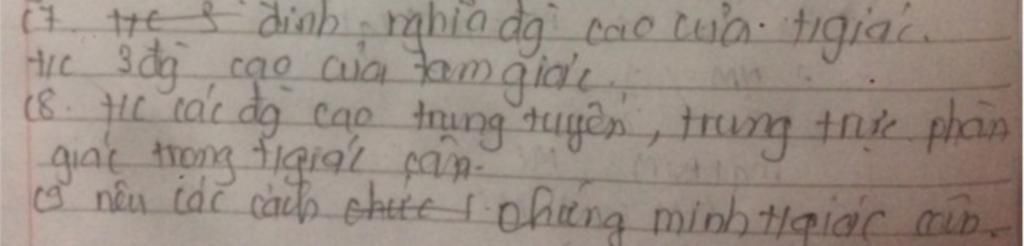 C7. t/c 3 định nghĩa đg cao của t/giác.
t/c 3đg cao của tam giác.
C8. t/c các đg cao trung tuyến, trung trực phân
giác trong t/giác cân.
C9 nêu các cách chức 1 chứng minh t/giác cân.